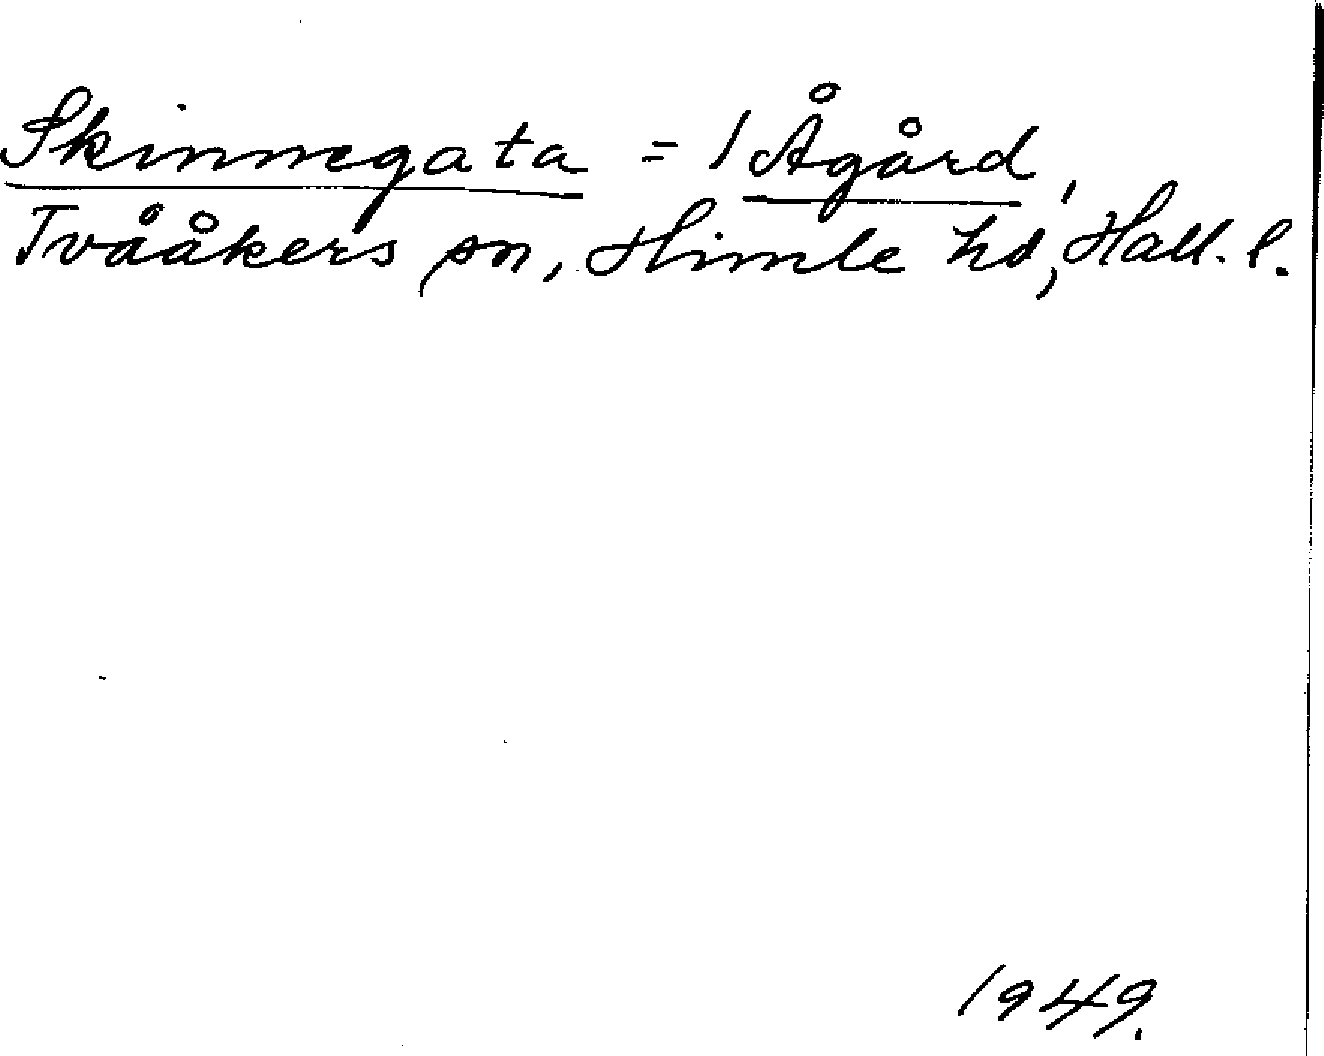 Skinnegata = 1 Ågård,
Tvååkers sn, Himle hd, Hall. l.
1949.